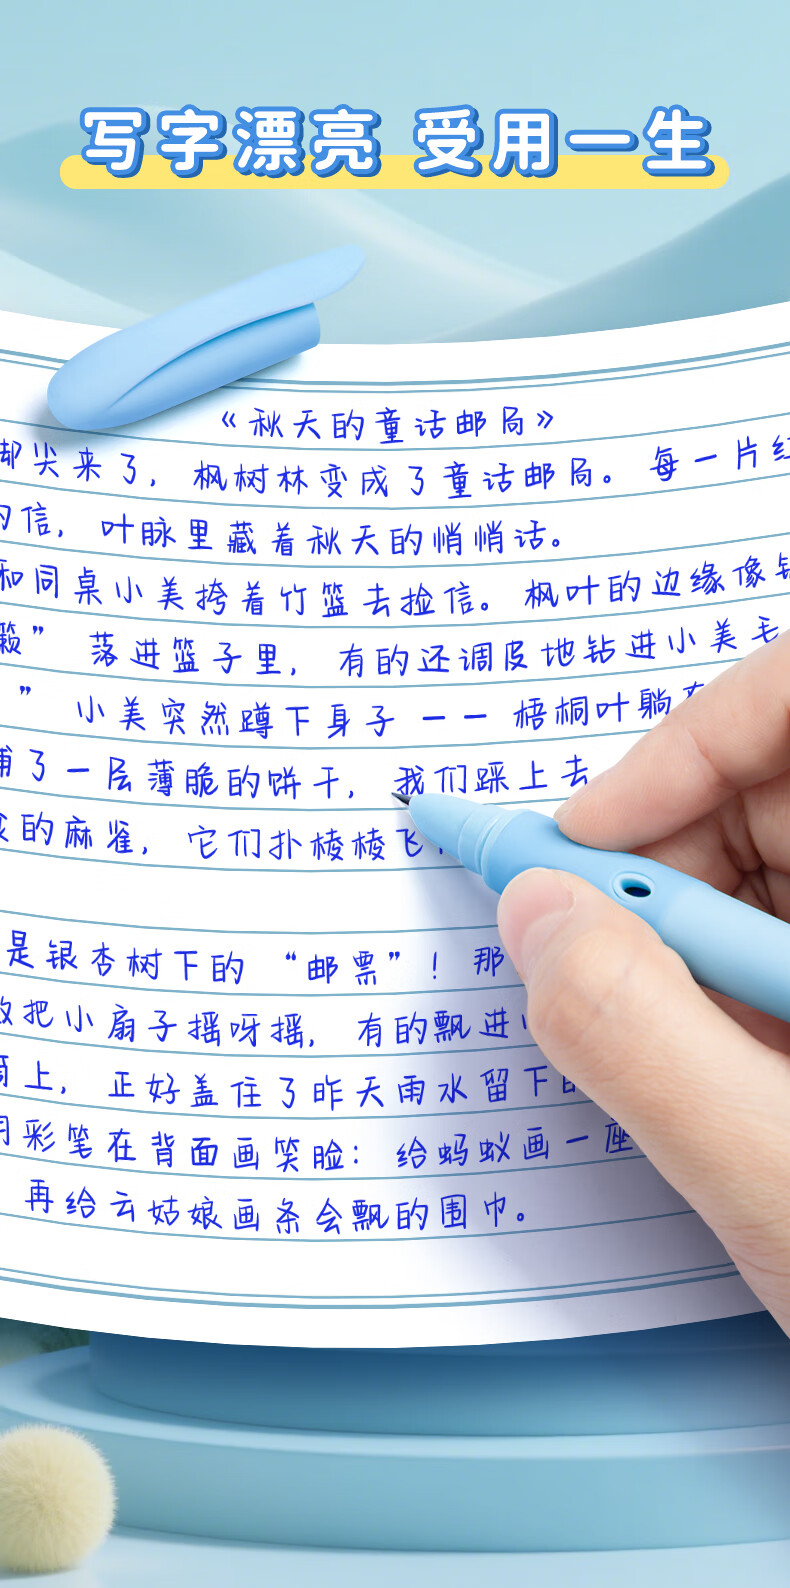 写字漂亮 受用一生
《秋天的童话邮局》
脚尖来了，枫树林变成了童话邮局。每一片红
的信，叶脉里藏着秋天的悄悄话。
和同桌小美挎着竹篮去捡信。枫叶的边缘像锯
”落进篮子里，有的还调皮地钻进小美毛
”小美突然蹲下身子——梧桐叶躺在
铺了一层薄脆的饼干，我们踩上去
的麻雀，它们扑棱棱飞
是银杏树下的“邮票”！那
把小扇子摇呀摇，有的飘进
筒上，正好盖住了昨天雨水留下的
用彩笔在背面画笑脸：给蚂蚁画一座
再给云姑娘画条会飘的围巾。